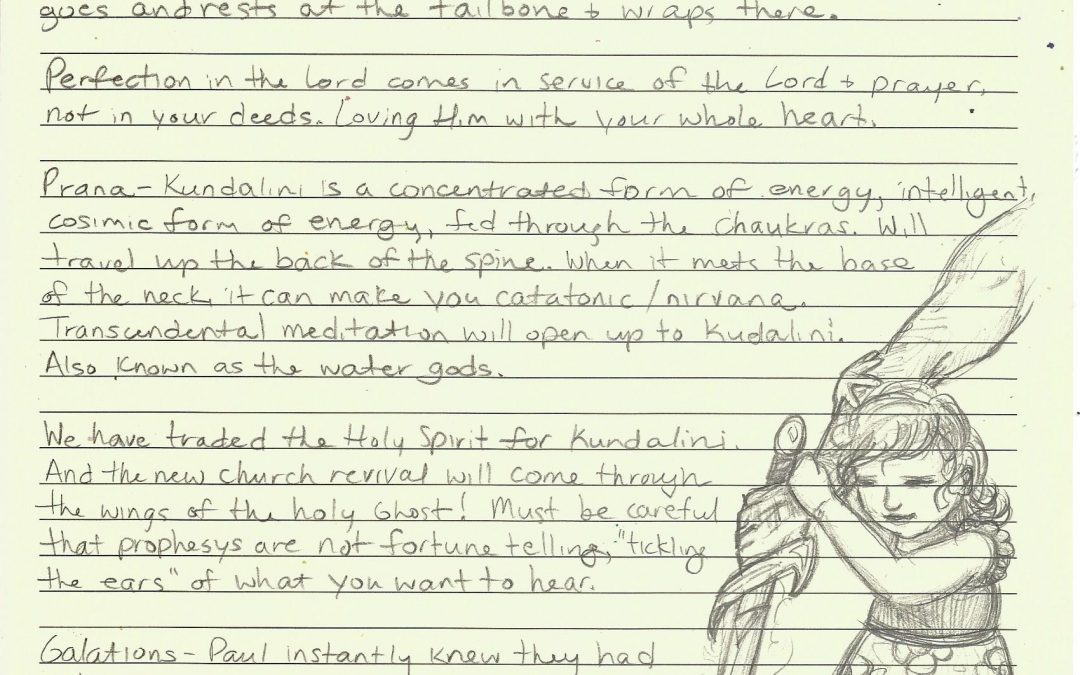 goes and rests at the tailbone & wraps there.
Perfection in the Lord comes in service of the Lord & prayer,
not in your deeds. Loving Him with your whole heart.
Prana - Kundalini is a concentrated form of energy, intelligent,
cosimic form of energy, fed through the Chaukras. Will
travel up the back of the spine. When it mets the base
of the neck, it can make you catatonic/nirvana.
Transcendental meditation will open up to Kudalini.
Also Known as the water gods.
We have traded the Holy Spirit for Kundalini.
And the new church revival will come through
the wings of the holy Ghost! Must be careful
that prophesys are not fortune telling, "tickling
the ears" of what you want to hear.
Galations - Paul instantly knew they had